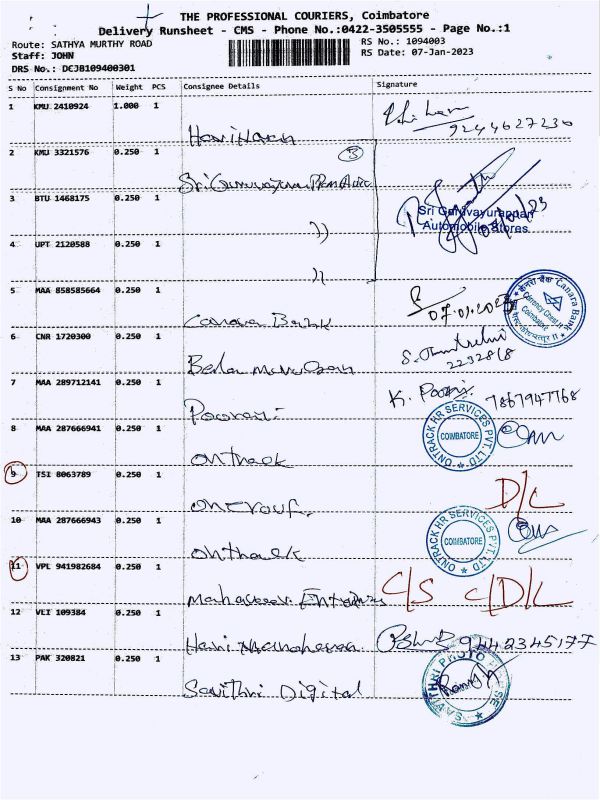 THE PROFESSIONAL COURIERS, Coimbatore
Delivery Runsheet - CMS - Phone No.:0422-3505555 - Page No.:1
Route: SATHYA MURTHY ROAD
RS No.: 1094003
Staff: JOHN
RS Date: 07-Jan-2023
DRS No.: DCJB109400301
S No Consignment No Weight PCS Consignee Details Signature
1 KMU 2410924 1.000 1
Hariharan 9244627230
2 KMU 3321576 0.250 1
3
3 BTU 1468175 0.250 1
Sri Guruvayurappan
Automobile Stores.
4 UPT 2120588 0.250 1
5 MAA 858585664 0.250 1
Canara Bank 07.01.2023
केनरा बैंक Canara Bank
Currency Chest
Coimbatore
6 CNR 1720300 0.250 1
2232868
7 MAA 289712141 0.250 1
K. 7867947768
8 MAA 287666941 0.250 1
ontrack
ONTRACK HR SERVICES PVT. LTD
COIMBATORE
9 TSI 8063789 0.250 1
D/L
10 MAA 287666943 0.250 1
ontrack
ONTRACK HR SERVICES PVT. LTD
COIMBATORE
11 VPL 941982684 0.250 1
C/S C/D/L
12 VEI 109384 0.250 1
Hari Manoharan 9442345177
13 PAK 320821 0.250 1
Savithri Digital
SAVITHRI PHOTO HOUSE